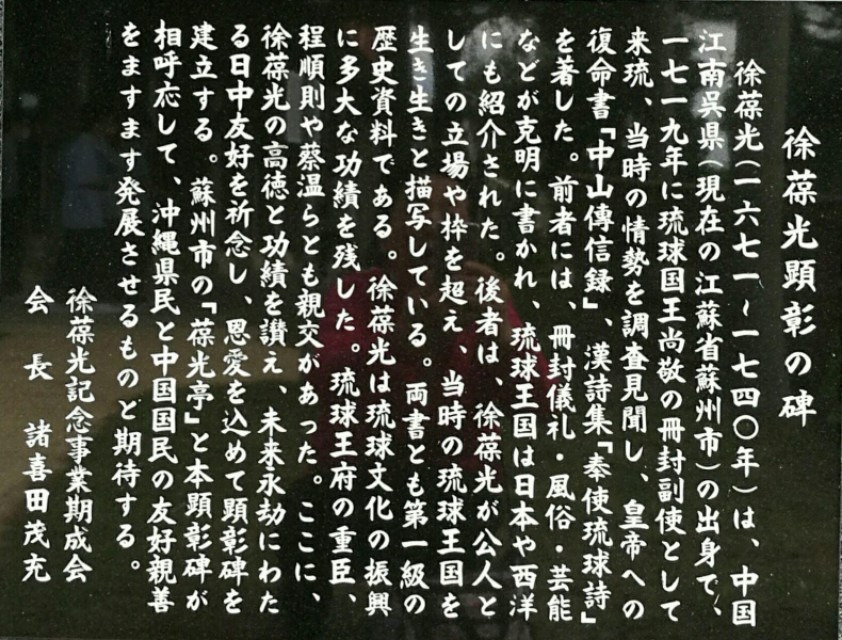 徐葆光顕彰の碑
徐葆光(一六七一~一七四〇年)は、中国
江南呉県(現在の江蘇省蘇州市)の出身で、
一七一九年に琉球国王尚敬の冊封副使として
来琉、当時の情勢を調査見聞し、皇帝への
復命書「中山傳信録」、漢詩集「奉使琉球詩」
を著した。前者には、冊封儀礼・風俗・芸能
などが克明に書かれ、琉球王国は日本や西洋
にも紹介された。後者は、徐葆光が公人と
しての立場や枠を超え、当時の琉球王国を
生き生きと描写している。両書とも第一級の
歴史資料である。徐葆光は琉球文化の振興
に多大な功績を残した。琉球王府の重臣、
程順則や蔡温らとも親交があった。ここに、
徐葆光の高徳と功績を讃え、未来永劫にわた
る日中友好を祈念し、恩愛を込めて顕彰碑を
建立する。蘇州市の「葆光亭」と本顕彰碑が
相呼応して、沖縄県民と中国国民の友好親善
をますます発展させるものと期待する。
徐葆光記念事業期成会
会長 諸喜田茂充